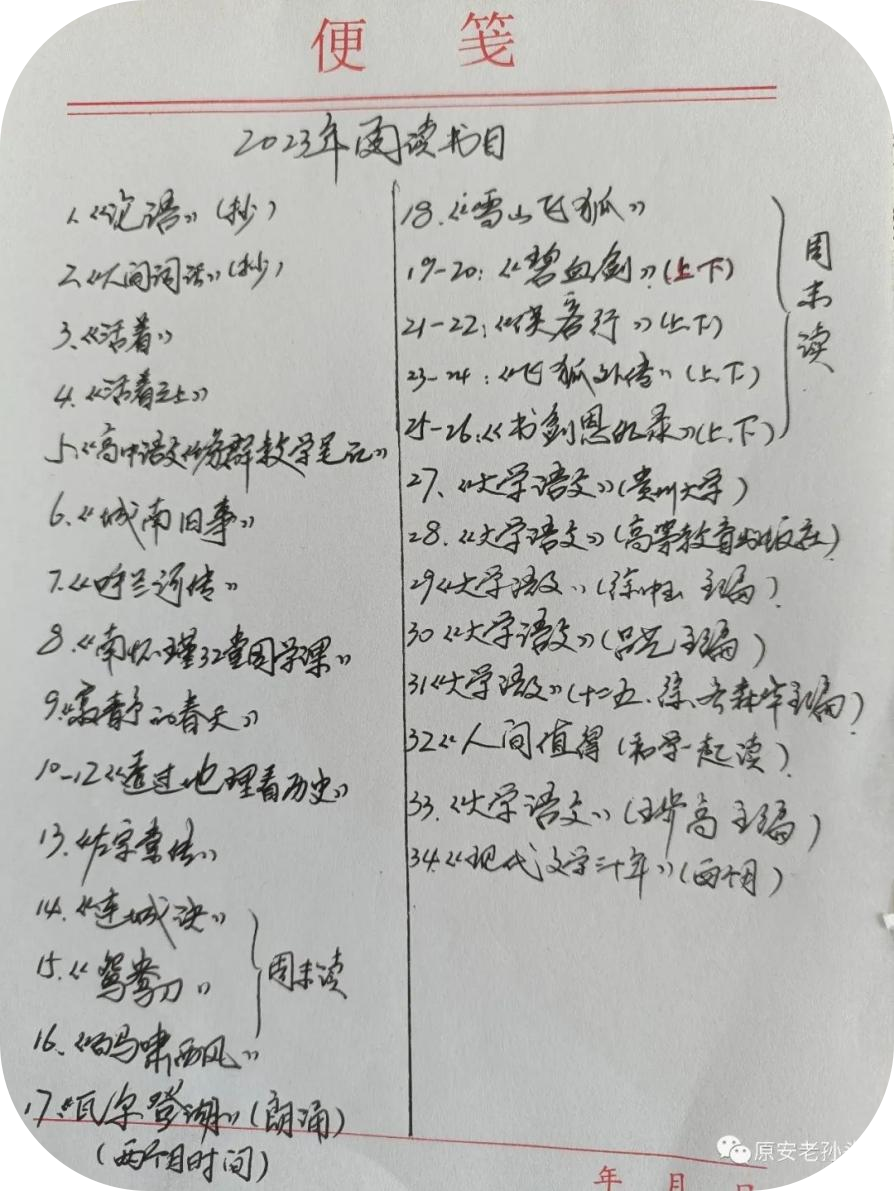 便 笺
2023年阅读书目
1.《论语》(抄)
2.《人间词话》(抄)
3.《活着》
4.《活着之上》
5.《高中语文《》群教学笔记》
6.《城南旧事》
7.《呼兰河传》
8.《南怀瑾32堂国学课》
9.《的春天》
10-12《透过地理看历史》
13.《左宗棠传》
14.《连城诀》
15.《鸳鸯刀》
16.《白马啸西风》
周末读
17.《瓦尔登湖》(朗诵)
(两个月时间)
18.《雪山飞狐》
19-20:《碧血剑》(上下)
21-22:《侠客行》(上下)
23-24:《飞狐外传》(上.下)
25-26:《书剑恩仇录》(上.下)
周末读
27.《大学语文》(贵州大学)
28.《大学语文》(高等教育出版社)
29《大学语文》(徐中玉 主编)
30《大学语文》(吕 主编)
31《大学语文》(十二五.徐.主编)
32《人间值得(和学一起读)
33.《大学语文》(王步高 主编)
34.《现代文学三十年》(两个月)
原安老孙
年 月 日